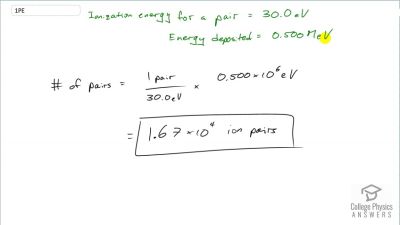 1PE
Ionization energy for a pair = 30.0 eV
Energy deposited = 0.500 MeV
# of pairs = 1 pair / 30.0 eV × 0.500 × 10⁶ eV
= 1.67 × 10⁴ ion pairs
College Physics
ANSWERS